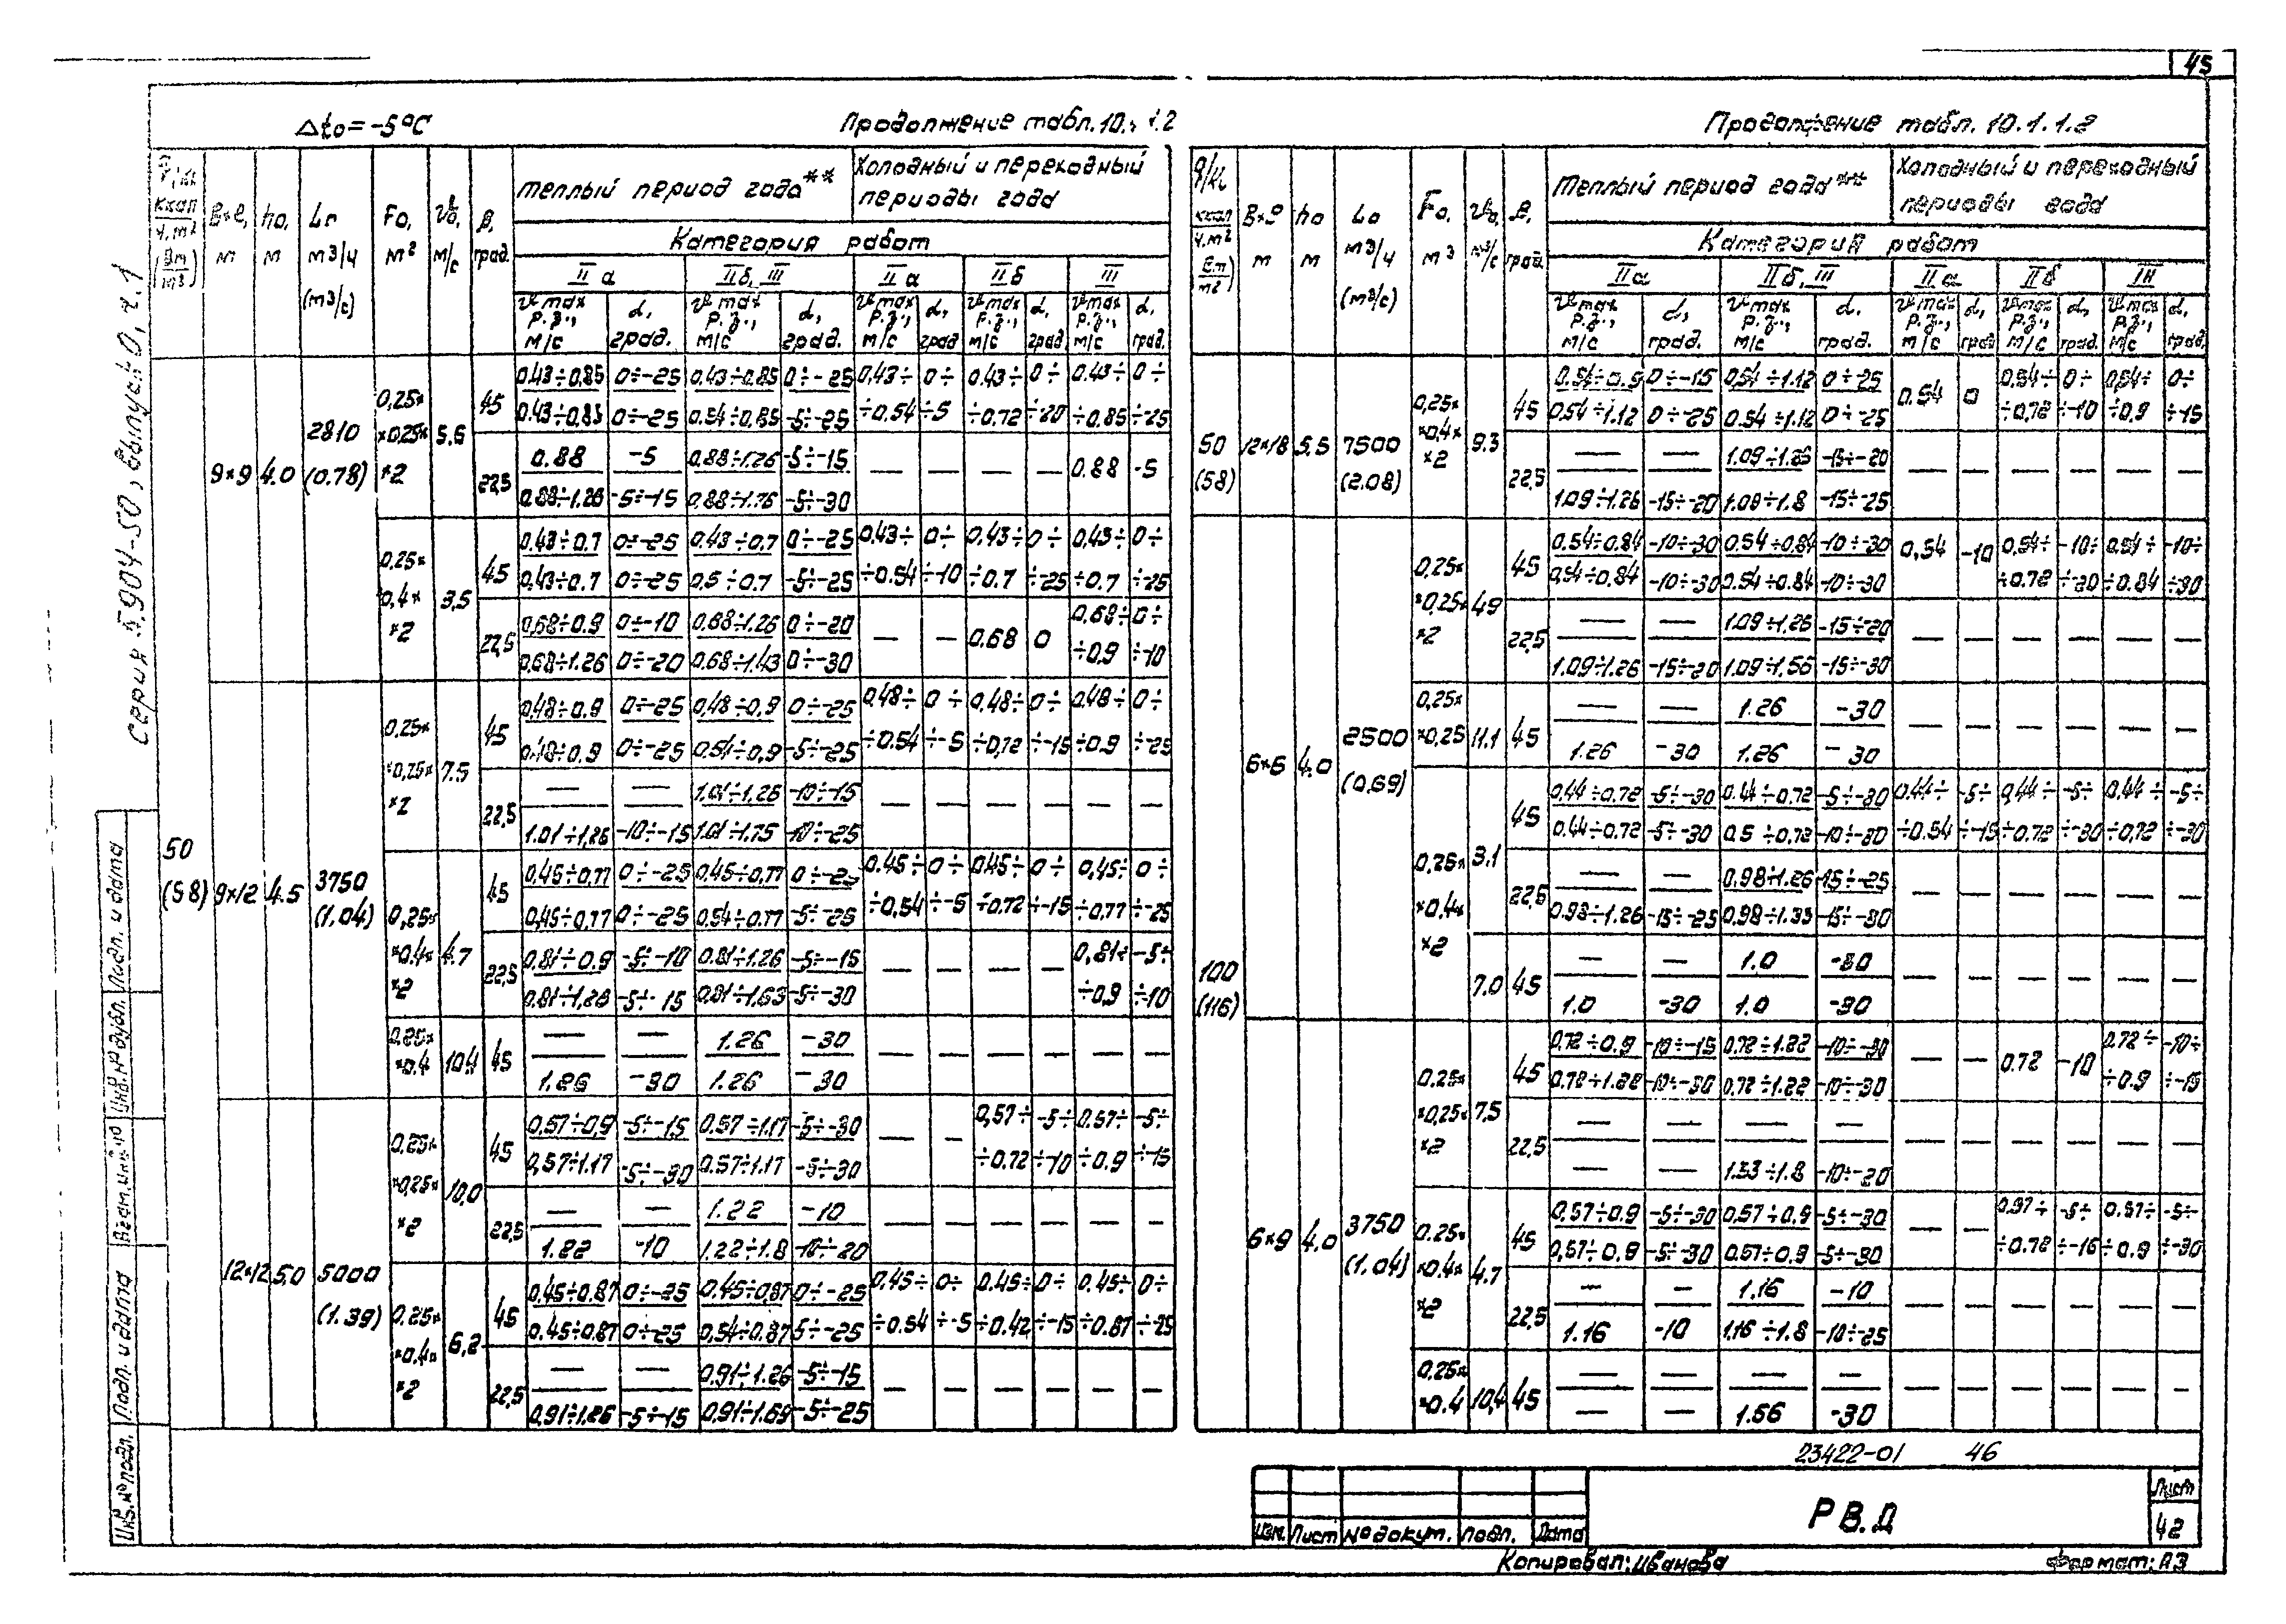 45
Δto = -5°C
Продолжение табл. 10.1.2
Продолжение табл. 10.1.1.2
Серия 5.904-50, выпуск 0, ч.1
ккал
ч.м²
B×l, м
h₀, м
м³/ч
(м³/с)
F₀, м²
v₀, м/с
β, град.
Теплый период года**
Холодный и переходный
периоды года
Категория работ
IIа IIб, III IIа IIб III
v max р.з., м/с
α, град.
0,43÷0,85 0÷-25 0,43÷0,85 0÷-25 0,43÷ 0÷ 0,43÷ 0÷ 0,43÷ 0÷
0,25× ×0,25× ×2 5,6 45
0.43÷0.85 0÷-25 0.54÷0.85 -5÷-25 ÷0.54 ÷5 ÷0.72 ÷-20 ÷0.85 ÷-25
50 (58) 9×9 4.0 2810 (0.78)
0.88 -5 0.88÷1.26 -5÷-15 — — — — 0.88 -5
22,5
0.88÷1.26 -5÷-15 0.88÷1.76 -5÷-30
0,43÷0.7 0÷-25 0,43÷0,7 0÷-25 0,43÷ 0÷ 0,43÷ 0÷ 0,43÷ 0÷
0,25× 0,4× ×2 3,5 45
0,43÷0.7 0÷-25 0,5÷0.7 -5÷-25 ÷0.54 ÷-10 ÷0.7 ÷-25 ÷0.7 ÷-25
0,68÷0.9 0÷-10 0.68÷1.26 0÷-20 — — 0.68 0 0,68÷ 0÷
22,5
0,68÷1.26 0÷-20 0.68÷1.43 0÷-30 ÷0.9 ÷-10
9×12 4.5 3750 (1.04)
0,48÷0.9 0÷-25 0,48÷0,9 0÷-25 0,48÷ 0÷ 0,48÷ 0÷ 0,48÷ 0÷
0,25× ×0,25× ×2 7.5 45
0,48÷0.9 0÷-25 0.54÷0,9 -5÷-25 ÷0.54 ÷-5 ÷0,72 ÷-15 ÷0.9 ÷-25
— — 1.01÷1.26 -10÷-15 — — — — — —
22,5
1.01÷1,26 -10÷-15 1.01÷1.75 -10÷-25
0,45÷0,77 0÷-25 0.45÷0,77 0÷-25 0.45÷ 0÷ 0,45÷ 0÷ 0,45÷ 0÷
0,25× ×0.4× ×2 4.7 45
0,45÷0,77 0÷-25 0,54÷0.77 -5÷-25 ÷0,54 ÷-5 ÷0.72 ÷-15 ÷0.77 ÷-25
0.81÷0,9 -5÷-10 0.81÷1.26 -5÷-15 — — — — 0,81÷ -5÷
22,5
0.81÷1,26 -5÷-15 0,81÷1.63 -5÷-30 ÷0,9 ÷-10
0,25× ×0.4 10.4 45
— — 1.26 -30 — — — — — —
1.26 -30 1.26 -30
12×12 5.0 5000 (1.39)
0,57÷0,9 -5÷-15 0.57÷1.17 -5÷-30 — — 0,57÷ -5÷ 0.57÷ -5÷
0.25× ×0,25× ×2 10,0 45
0,57÷1.17 -5÷-30 0.57÷1.17 -5÷-30 ÷0.72 ÷-10 ÷0.9 ÷-15
— — 1.22 -10 — — — — — —
22,5
1.22 -10 1.22÷1.8 -10÷-20
0.45÷0.87 0÷-25 0,45÷0,87 0÷-25 0.45÷ 0÷ 0.45÷ 0÷ 0.45÷ 0÷
0.25× ×0,4× ×2 6,2 45
0.45÷0.87 0÷-25 0,54÷0.87 -5÷-25 ÷0.54 ÷-5 ÷0.42 ÷-15 ÷0.87 ÷-25
— — 0.91÷1.26 -5÷-15 — — — — — —
22,5
0,91÷1.26 -5÷-15 0,91÷1.69 -5÷-25
B×l м
h₀ м
L₀ м³/ч (м³/с)
F₀, м³
β, град.
Теплый период года**
Холодный и переходный
периоды года
Категория работ
IIа IIб, III IIа IIб III
v max р.з., м/с
α, град.
0.54÷0.9 0÷-15 0,54÷1.12 0÷-25 0.54 0 0,54÷ 0÷ 0,54÷ 0÷
50 (58) 12×18 5,5 7500 (2.08) 0,25× ×0,4× ×2 9.3 45
0.54÷1.12 0÷-25 0.54÷1.12 0÷-25 ÷0,72 ÷-10 ÷0.9 ÷-15
— — 1.09÷1.26 -15÷-20 — — — — — —
22,5
1.09÷1.26 -15÷-20 1.09÷1.8 -15÷-25
100 (116) 6×6 4.0 2500 (0.69)
0.54÷0.84 -10÷-30 0.54÷0.84 -10÷-30 0,54 -10 0,54÷ -10÷ 0.54÷ -10÷
0,25× ×0,25× ×2 4.9 45
0,54÷0.84 -10÷-30 0.54÷0.84 -10÷-30 ÷0.72 ÷-20 ÷0.84 ÷-30
— — 1.09÷1.26 -15÷-20 — — — — — —
22,5
1.09÷1.26 -15÷-20 1.09÷1,56 -15÷-30
0,25× ×0,25 11.1 45
— — 1.26 -30 — — — — — —
1.26 -30 1.26 -30
0,44÷0.72 -5÷-30 0.44÷0.72 -5÷-30 0.44÷ -5÷ 0,44÷ -5÷ 0,44÷ -5÷
0,25× ×0,4× ×2 3.1 45
0.44÷0.72 -5÷-30 0.5÷0,72 -10÷-30 ÷0.54 ÷-15 ÷0.72 ÷-30 ÷0,72 ÷-30
— — 0.98÷1.26 -15÷-25 — — — — — —
22,5
0.98÷1.26 -15÷-25 0.98÷1.33 -15÷-30
7.0 45
— — 1.0 -30 — — — — — —
1.0 -30 1.0 -30
6×9 4.0 3750 (1.04)
0.72÷0.9 -10÷-15 0.72÷1.22 -10÷-30 — — 0.72 -10 0.72÷ -10÷
0.25× ×0,25× ×2 7,5 45
0.72÷1.22 -10÷-30 0.72÷1.22 -10÷-30 ÷0.9 ÷-15
— — — — — — — — — —
22,5
— — 1.53÷1.8 -10÷-20
0,57÷0.9 -5÷-30 0,57÷0.9 -5÷-30 — — 0.57÷ -5÷ 0.57÷ -5÷
0.25× ×0.4× ×2 4.7 45
0,57÷0.9 -5÷-30 0.57÷0.9 -5÷-30 ÷0.72 ÷-15 ÷0.9 ÷-30
— — 1.16 -10 — — — — — —
22,5
1.16 -10 1.16÷1.8 -10÷-25
0,25× ×0.4 10,4 45
— — — — — — — — — —
— — 1.56 -30
23422-01 46
Изм. Лист № докум. Подп. Дата
РВ.Д
Лист
42
Копировал: Иванова
Формат: А3
Инв. № подл.
Подп. и дата
Взам. инв. №
Инв. № дубл.
Подп. и дата